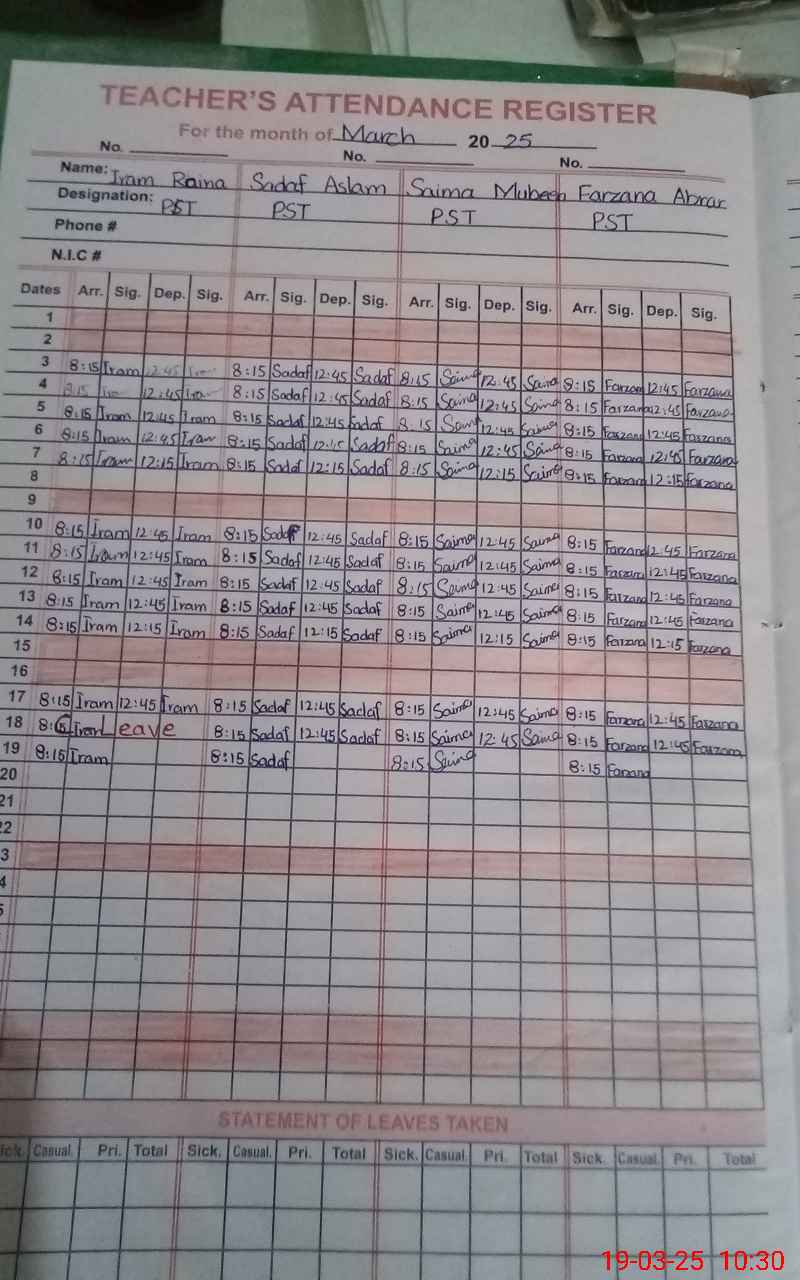 TEACHER'S ATTENDANCE REGISTER
For the month of March 20 25
No. No. No.
Name: Iram Raina Sadaf Aslam Saima Mubeen Farzana Abrar
Designation: PST PST PST PST
Phone #
N.I.C #
Dates Arr. Sig. Dep. Sig. Arr. Sig. Dep. Sig. Arr. Sig. Dep. Sig. Arr. Sig. Dep. Sig.
1
2
3 8:15 Iram 12:45 Iram 8:15 Sadaf 12:45 Sadaf 8:15 Saima 12:45 Saima 8:15 Farzana 12:45 Farzana
4 8:15 Iram 12:45 Iram 8:15 Sadaf 12:45 Sadaf 8:15 Saima 12:45 Saima 8:15 Farzana 12:45 Farzana
5 8:15 Iram 12:45 Iram 8:15 Sadaf 12:45 Sadaf 8:15 Saima 12:45 Saima 8:15 Farzana 12:45 Farzana
6 8:15 Iram 12:45 Iram 8:15 Sadaf 12:15 Sadaf 8:15 Saima 12:45 Saima 8:15 Farzana 12:45 Farzana
7 8:15 Iram 12:15 Iram 8:15 Sadaf 12:15 Sadaf 8:15 Saima 12:15 Saima 8:15 Farzana 12:15 Farzana
8
9
10 8:15 Iram 12:45 Iram 8:15 Sadaf 12:45 Sadaf 8:15 Saima 12:45 Saima 8:15 Farzana 12:45 Farzana
11 8:15 Iram 12:45 Iram 8:15 Sadaf 12:45 Sadaf 8:15 Saima 12:45 Saima 8:15 Farzana 12:45 Farzana
12 8:15 Iram 12:45 Iram 8:15 Sadaf 12:45 Sadaf 8:15 Saima 12:45 Saima 8:15 Farzana 12:45 Farzana
13 8:15 Iram 12:45 Iram 8:15 Sadaf 12:45 Sadaf 8:15 Saima 12:45 Saima 8:15 Farzana 12:45 Farzana
14 8:15 Iram 12:15 Iram 8:15 Sadaf 12:15 Sadaf 8:15 Saima 12:15 Saima 8:15 Farzana 12:15 Farzana
15
16
17 8:15 Iram 12:45 Iram 8:15 Sadaf 12:45 Sadaf 8:15 Saima 12:45 Saima 8:15 Farzana 12:45 Farzana
18 Iram Leave 8:15 Sadaf 12:45 Sadaf 8:15 Saima 12:45 Saima 8:15 Farzana 12:45 Farzana
19 8:15 Iram 8:15 Sadaf 8:15 Saima 8:15 Farzana
20
21
22
3
4
5
STATEMENT OF LEAVES TAKEN
Sick. Casual. Pri. Total Sick. Casual. Pri. Total Sick. Casual. Pri. Total Sick. Casual. Pri. Total
19-03-25 10:30